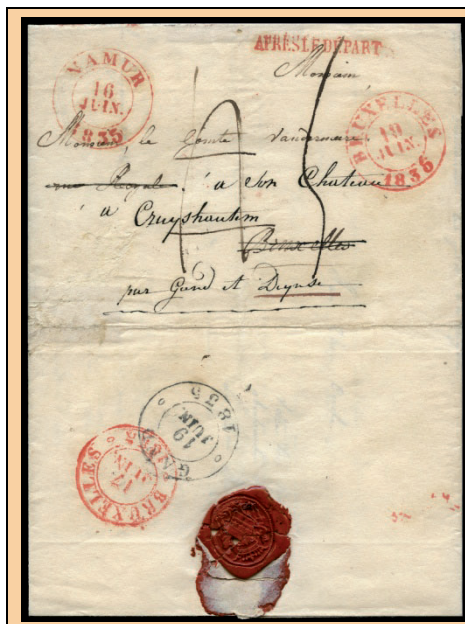 APRÈS LE DÉPART
NAMUR
16
JUIN.
1835
BRUXELLES
19
JUIN.
1836
Monsieur le Comte Vandermeere
rue Royale. à son Chateau
à Cruyshautem
Bruxelles
par Gand et Deynse
GAND
19
JUIN
1835
BRUXELLES
17
JUIN